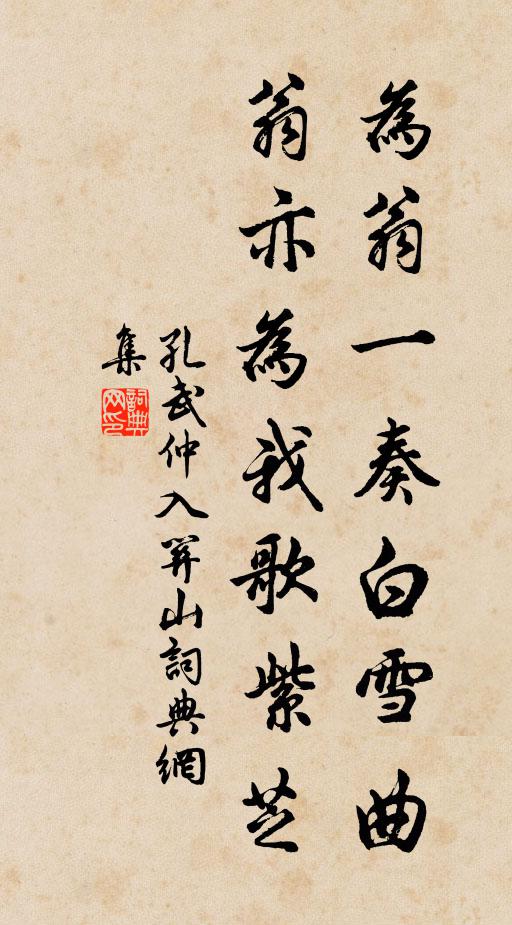 為翁一奏白雪曲
翁亦為我歌紫芝
孔武仲入關山詞典網
集
詞典
网印